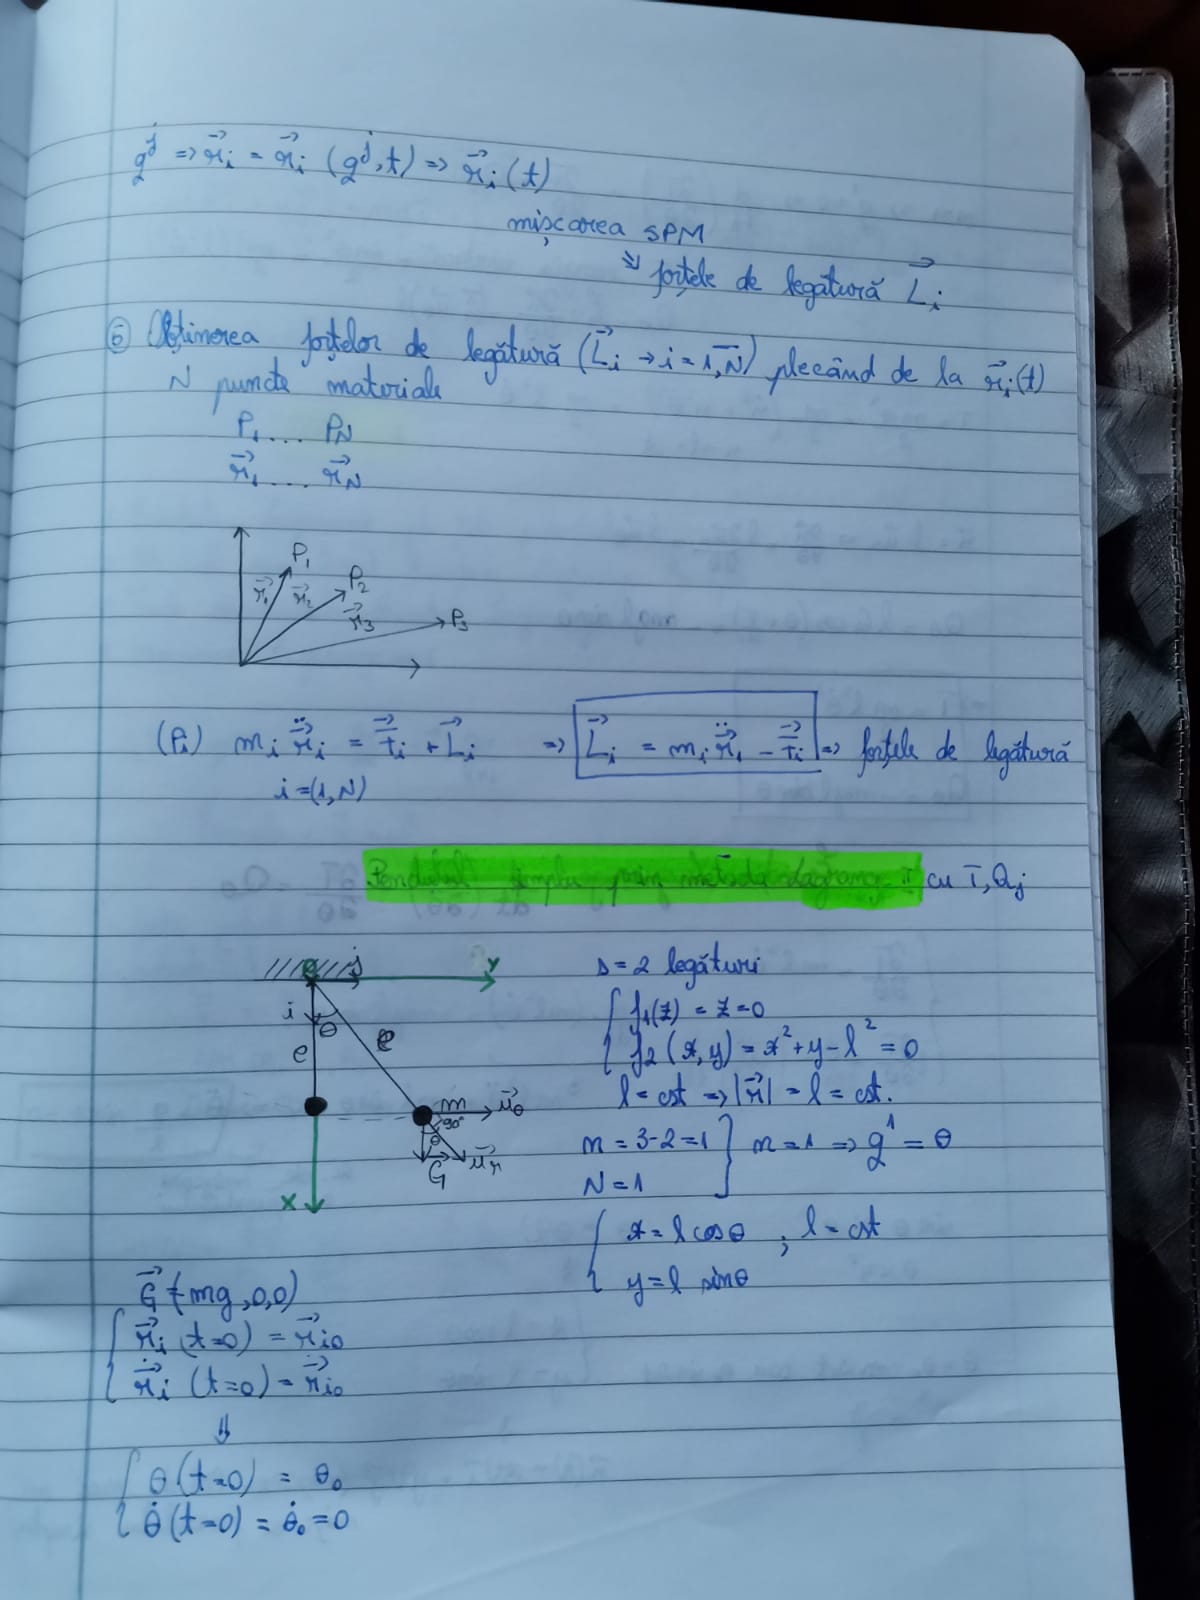 g^j => r⃗i = r⃗i (g^j, t) => r⃗i (t)
mișcarea SPM
⇓ forțele de legătură L⃗i
⑤ Obținerea forțelor de legătură (L⃗i → i = 1,N̅) plecând de la r⃗i(t)
N puncte materiale
P1 .... PN
r⃗1 .... r⃗N
P1
P2
P3
r⃗1
r⃗2
r⃗3
(Pi) mi r̈⃗i = F⃗i + L⃗i => L⃗i = mi r̈⃗i - F⃗i => forțele de legătură
i = (1, N)
Pendulul simplu prin metoda Lagrange II cu T, Qj
s = 2 legături
j
y
f1(z) = z = 0
i
θ
l
l
f2 (x, y) = x² + y - l² = 0
l = cst => |r⃗| = l = cst.
m
u⃗θ
90°
θ
G
u⃗r
x
m = 3-2=1
N = 1
m = 1 => g¹ = θ
x = l cos θ ; l = cst
y = l sin θ
G⃗ (mg, 0, 0)
r⃗i (t=0) = r⃗i0
ṙ⃗i (t=0) = ṙ⃗i0
⇓
θ (t=0) = θ0
θ̇ (t=0) = θ̇0 = 0